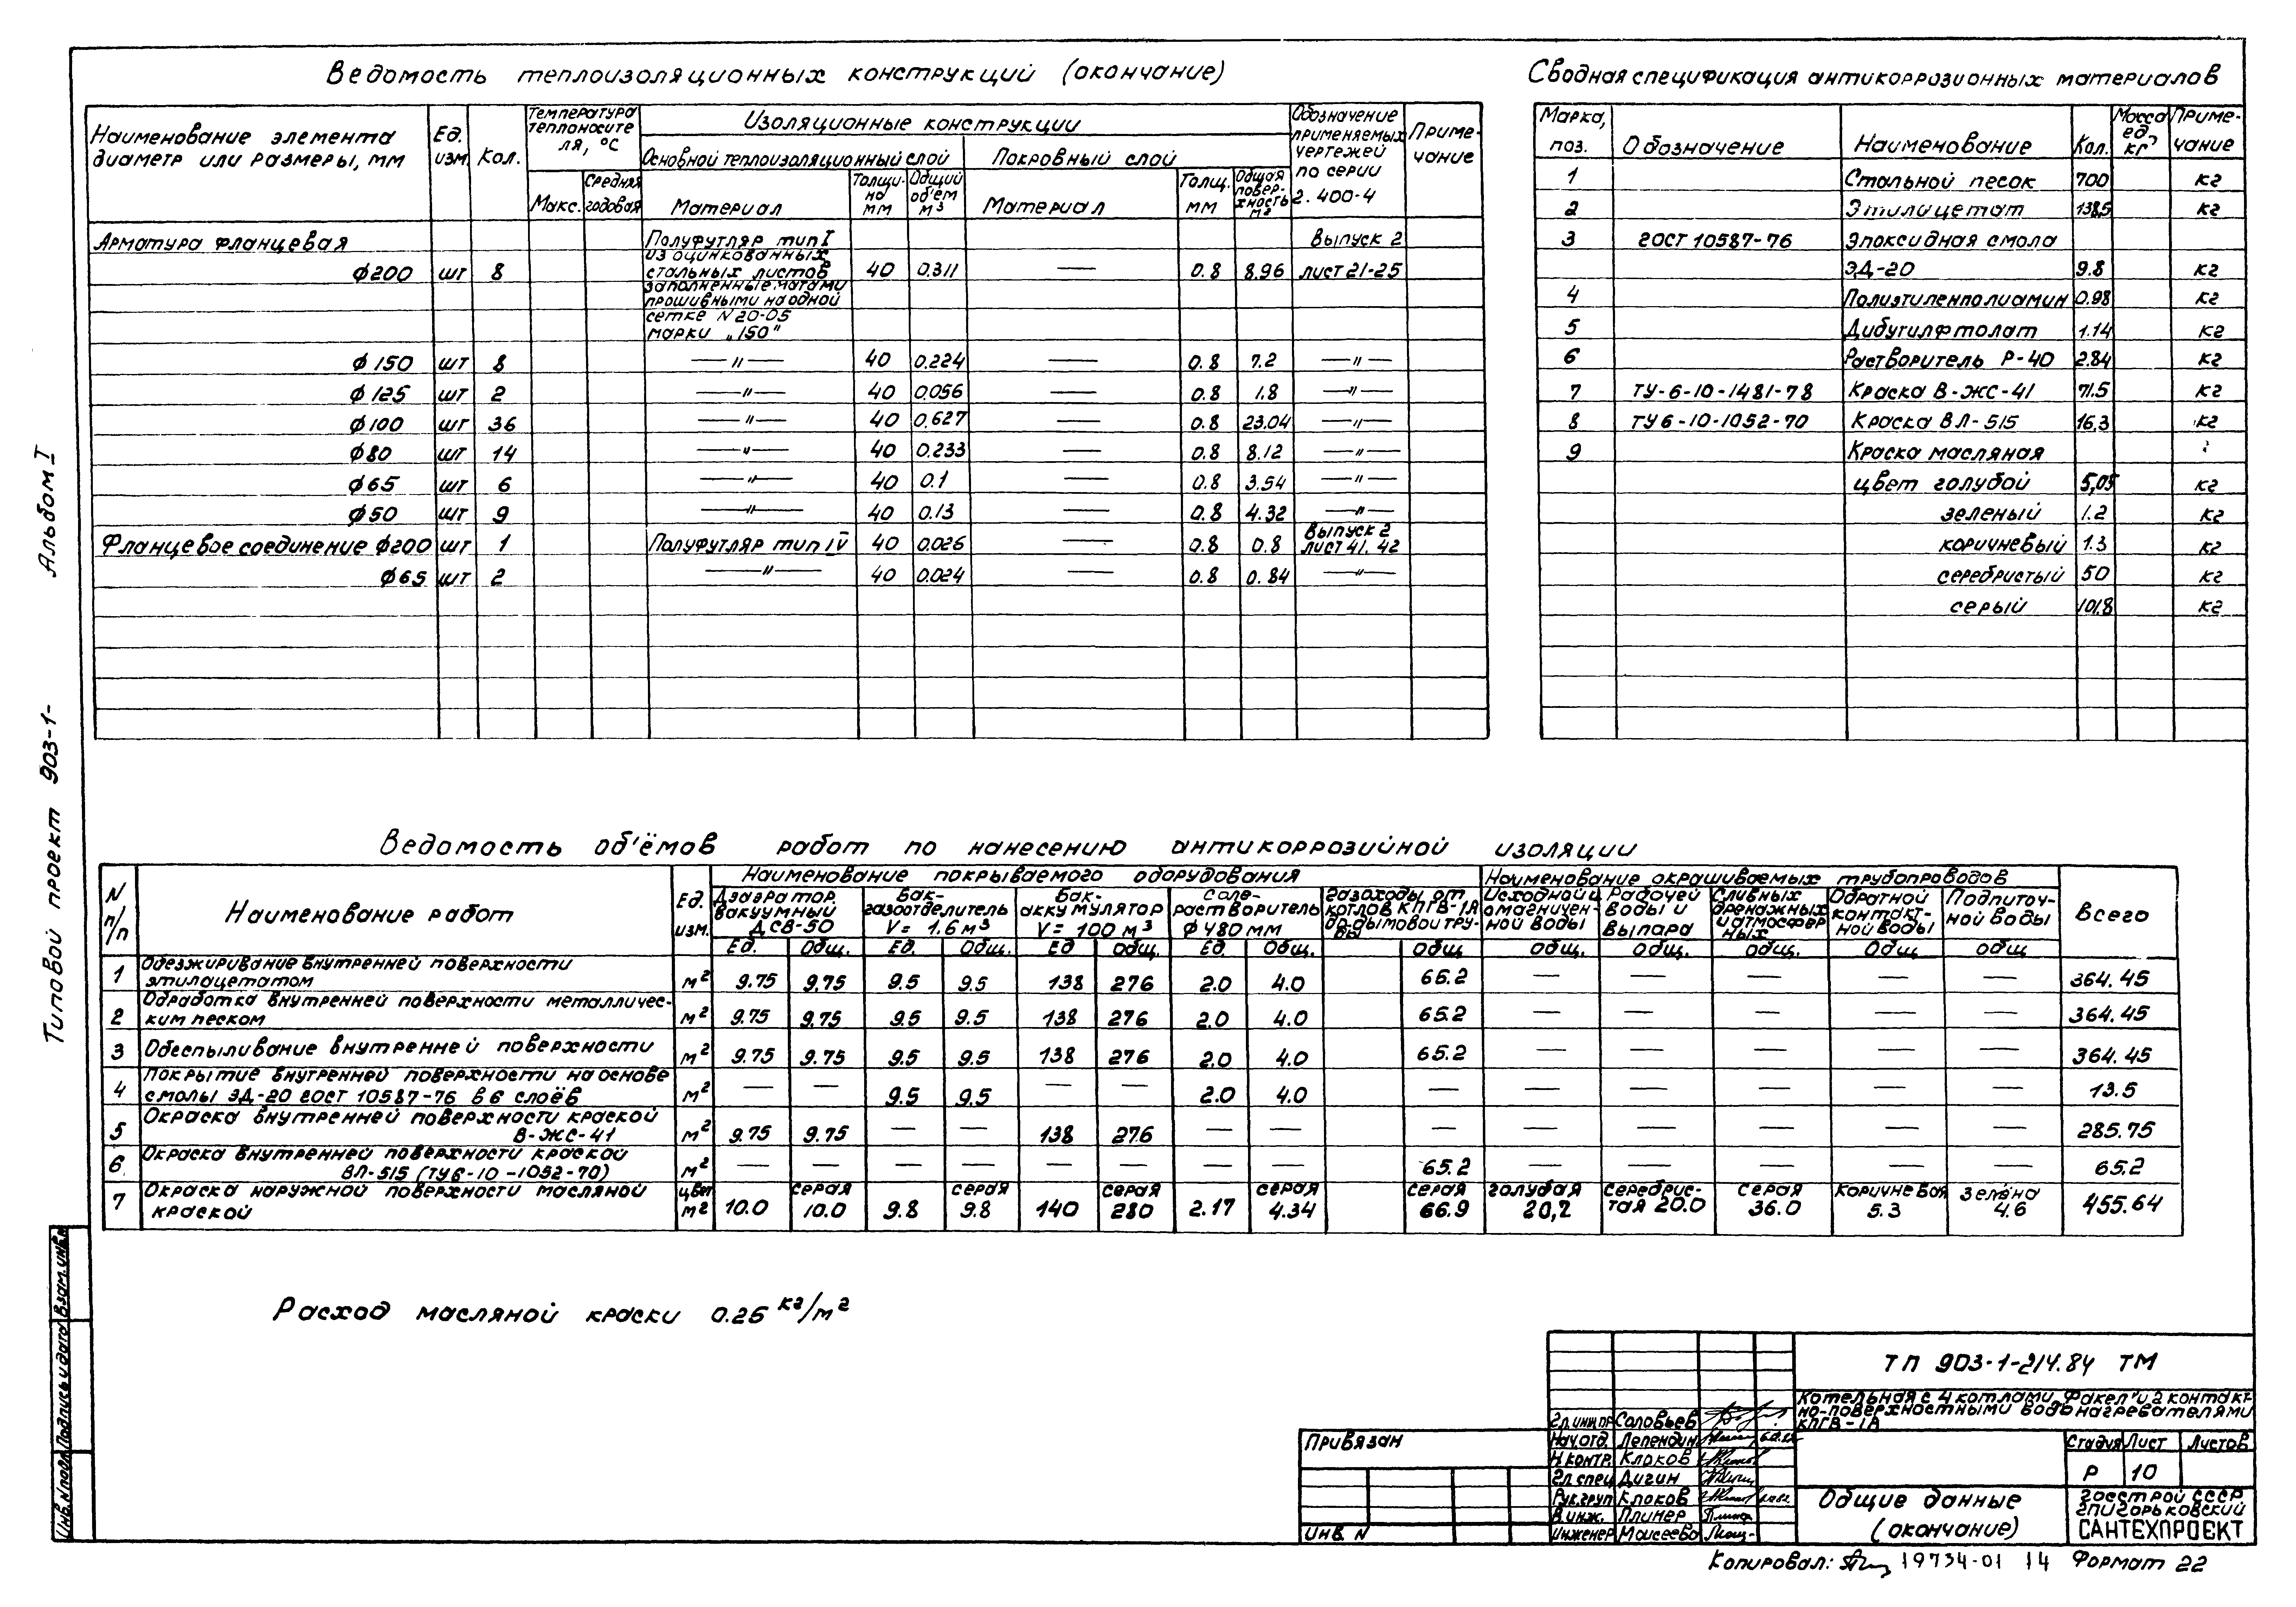 Ведомость теплоизоляционных конструкций (окончание)
Наименование элемента диаметр или размеры, мм | Ед. изм. | Кол. | Температура теплоносителя, °С | Изоляционные конструкции | Обозначение применяемых чертежей по серии 2.400-4 | Примечание
Основной теплоизоляционный слой | Покровный слой
Макс. | Средняя годовая | Материал | Толщина мм | Общий объем м³ | Материал | Толщ. мм | Общая поверхность м²
Арматура фланцевая | Полуфутляр тип I | Выпуск 2
из оцинкованных
ф200 | шт | 8 | стальных листов | 40 | 0.311 | — | 0.8 | 8.96 | лист 21-25
заполненные матами
прошивными на одной
сетке N20-05
марки „150"
ф150 | шт | 8 | —"— | 40 | 0.224 | — | 0.8 | 7.2 | —"—
ф125 | шт | 2 | —"— | 40 | 0.056 | — | 0.8 | 1.8 | —"—
ф100 | шт | 36 | —"— | 40 | 0.627 | — | 0.8 | 23.04 | —"—
ф80 | шт | 14 | —"— | 40 | 0.233 | — | 0.8 | 8.12 | —"—
ф65 | шт | 6 | —"— | 40 | 0.1 | — | 0.8 | 3.54 | —"—
ф50 | шт | 9 | —"— | 40 | 0.13 | — | 0.8 | 4.32 | —"—
Фланцевое соединение ф200 | шт | 1 | Полуфутляр тип IV | 40 | 0.026 | — | 0.8 | 0.8 | Выпуск 2 лист 41, 42
ф65 | шт | 2 | —"— | 40 | 0.024 | — | 0.8 | 0.84 | —"—
Сводная спецификация антикоррозионных материалов
Марка, поз. | Обозначение | Наименование | Кол. | Масса ед. кг | Примечание
1 | Стальной песок | 700 | кг
2 | Этилацетат | 138,5 | кг
3 | ГОСТ 10587-76 | Эпоксидная смола
ЭД-20 | 9.8 | кг
4 | Полиэтиленполиамин | 0.98 | кг
5 | Дибутилфтолат | 1.14 | кг
6 | Растворитель Р-40 | 2.84 | кг
7 | ТУ-6-10-1481-78 | Краска В-ЖС-41 | 71.5 | кг
8 | ТУ6-10-1052-70 | Краска ВЛ-515 | 16.3 | кг
9 | Краска масляная
цвет голубой | 5,05 | кг
зеленый | 1.2 | кг
коричневый | 1.3 | кг
серебристый | 50 | кг
серый | 101.8 | кг
Ведомость об'ёмов работ по нанесению антикоррозийной изоляции
N п/п | Наименование работ | Ед. изм. | Наименование покрываемого оборудования | Наименование окрашиваемых трубопроводов | Всего
Дэаэратор вакуумный ДСВ-50 | Бак-газоотделитель V= 1.6 м³ | Бак-аккумулятор V= 100 м³ | Солерастворитель ф 480 мм | Газоходы от котлов КПГВ-1А до дымовой трубы | Исходной и омагниченной воды | Рабочей воды и выпара | Сливных дренажных и атмосферных | Обратной контактной воды | Подпиточной воды
Ед. | Общ. | Ед. | Общ. | Ед | Общ. | Ед. | Общ. | Общ | Общ. | общ. | общ. | Общ | общ
1 | Обезжиривание внутренней поверхности этилацетатом | м² | 9.75 | 9.75 | 9.5 | 9.5 | 138 | 276 | 2.0 | 4.0 | 65.2 | — | — | — | — | — | 364.45
2 | Обработка внутренней поверхности металлическим песком | м² | 9.75 | 9.75 | 9.5 | 9.5 | 138 | 276 | 2.0 | 4.0 | 65.2 | — | — | — | — | — | 364.45
3 | Обеспыливание внутренней поверхности | м² | 9.75 | 9.75 | 9.5 | 9.5 | 138 | 276 | 2.0 | 4.0 | 65.2 | — | — | — | — | — | 364.45
4 | Покрытие внутренней поверхности на основе смолы ЭД-20 гост 10587-76 в 6 слоёв | м² | — | — | 9.5 | 9.5 | — | — | 2.0 | 4.0 | — | — | — | — | — | — | 13.5
5 | Окраска внутренней поверхности краской В-ЖС-41 | м² | 9.75 | 9.75 | — | — | 138 | 276 | — | — | — | — | — | — | — | — | 285.75
6 | Окраска внутренней поверхности краской ВЛ-515 (ТУ6-10-1052-70) | м² | — | — | — | — | — | — | — | — | 65.2 | — | — | — | — | — | 65.2
7 | Окраска наружной поверхности масляной краской | цвет м² | 10.0 | серая 10.0 | 9.8 | серая 9.8 | 140 | серая 280 | 2.17 | серая 4.34 | серая 66.9 | голубая 20,2 | Серебристая 20.0 | Серая 36.0 | Коричневая 5.3 | Зелёна 4.6 | 455.64
Расход масляной краски 0.25 кг/м²
Альбом I
Типовой проект 903-1-
Взам. инв. N
Подпись и дата
Инв. N подл.
Привязан
Инв. N
Гл. инж. пр | Соловьев
Нач. отд. | Лепендин
Н. контр. | Клоков
Гл. спец | Дигин
Рук. груп | Клоков
В. инж. | Плинер
Инженер | Моисеева
ТП 903-1-214.84 ТМ
Котельная с 4 котлами „Факел" и 2 контакт-
но-поверхностными водонагревателями
КПГВ-1А
Стадия | Лист | Листов
Р | 10
Общие данные
(окончание)
Госстрой СССР
ГПИ Горьковский
САНТЕХПРОЕКТ
Копировал: 19734-01 14 Формат 22